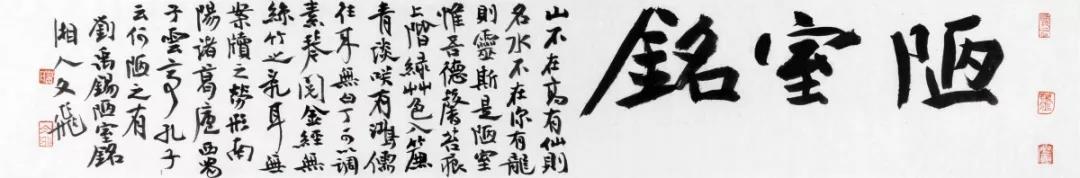 陋室銘
山不在高有仙則
名水不在深有龍
則靈斯是陋室
惟吾德馨苔痕
上階緑艸色入簾
青談笑有鴻儒
往來無白丁可以調
素琴閱金經無
絲竹之亂耳無
案牘之勞形南
陽諸葛廬西蜀
子雲亭孔子
云何陋之有
劉禹錫陋室銘
湘人文飛